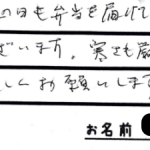 の日も弁当を届けて
ざいます。寒さも厳
しくお願いします
お名前